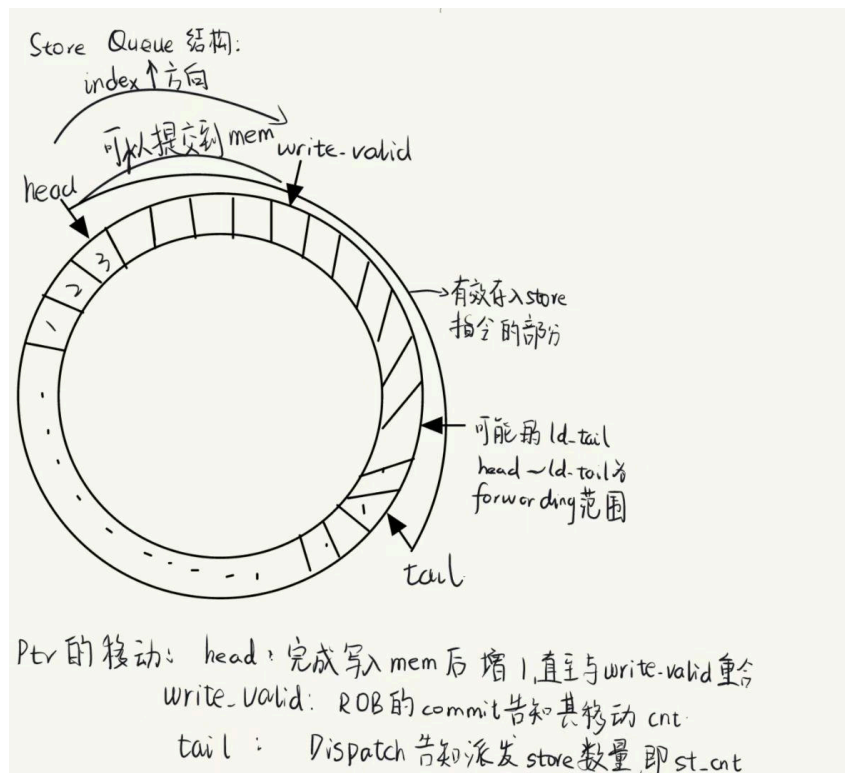 Store Queue 结构:
index↑方向
可以提交到 mem
write-valid
head
1 2 3
→有效存入store
指令的部分
可能的 ld_tail
head ~ ld-tail为
forwarding范围
tail
Ptr 的移动: head: 完成写入 mem 后 增 1,直至与write-valid 重合
write_valid: ROB的commit告知其移动 cnt
tail: Dispatch 告知派发 store 数量, 即 st_cnt